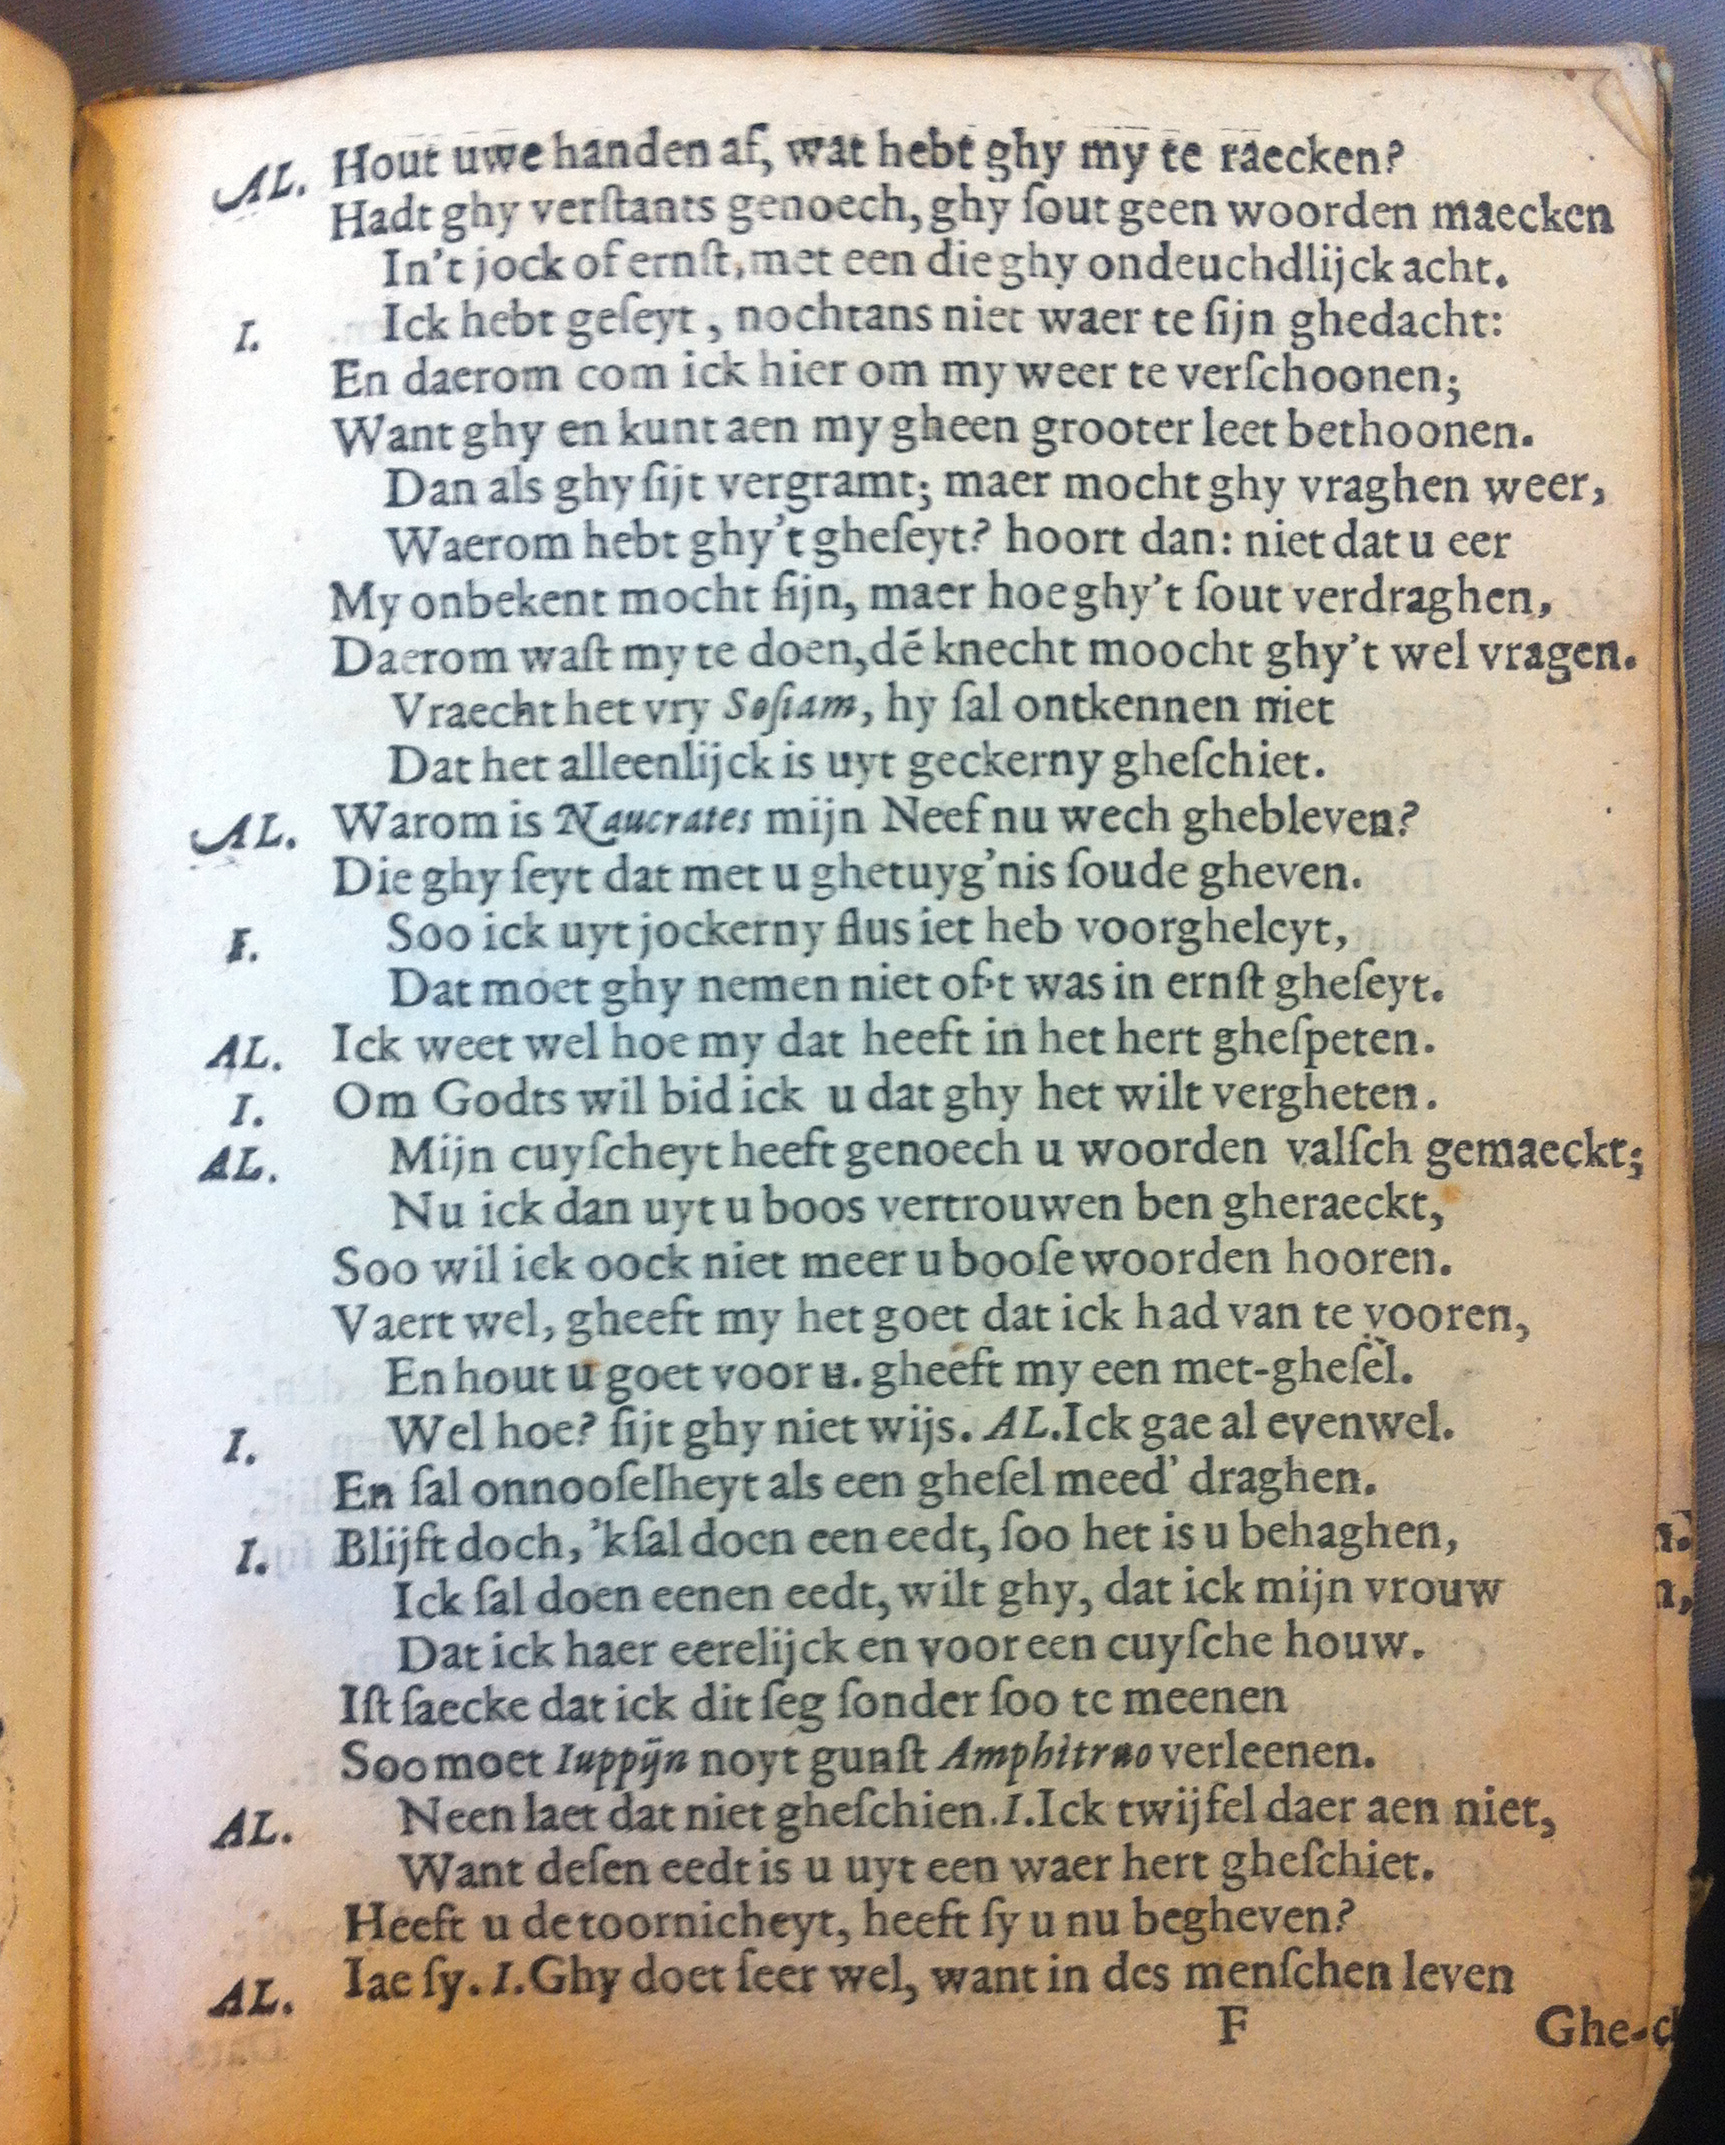 AL. Hout uwe handen af, wat hebt ghy my te raecken?
Hadt ghy verſtants genoech, ghy ſout geen woorden maecken
In't jock of ernſt, met een die ghy ondeuchdlijck acht.
I. Ick hebt geſeyt, nochtans niet waer te ſijn ghedacht:
En daerom com ick hier om my weer te verſchoonen;
Want ghy en kunt aen my gheen grooter leet bethoonen.
Dan als ghy ſijt vergramt; maer mocht ghy vraghen weer,
Waerom hebt ghy't gheſeyt? hoort dan: niet dat u eer
My onbekent mocht ſijn, maer hoe ghy't ſout verdraghen,
Daerom waſt my te doen, dē knecht moocht ghy't wel vragen.
Vraecht het vry Soſiam, hy ſal ontkennen niet
Dat het alleenlijck is uyt geckerny gheſchiet.
AL. Warom is Naucrates mijn Neef nu wech ghebleven?
Die ghy ſeyt dat met u ghetuyg'nis ſoude gheven.
I. Soo ick uyt jockerny flus iet heb voorgheleyt,
Dat moet ghy nemen niet oft was in ernſt gheſeyt.
AL. Ick weet wel hoe my dat heeft in het hert gheſpeten.
I. Om Godts wil bid ick u dat ghy het wilt vergheten.
AL. Mijn cuyſcheyt heeft genoech u woorden valſch gemaeckt;
Nu ick dan uyt u boos vertrouwen ben gheraeckt,
Soo wil ick oock niet meer u booſe woorden hooren.
Vaert wel, gheeft my het goet dat ick had van te vooren,
En hout u goet voor u. gheeft my een met-gheſel.
I. Wel hoe? ſijt ghy niet wijs. AL. Ick gae al evenwel.
En ſal onnooſelheyt als een gheſel meed' draghen.
I. Blijft doch, 'kſal doen een eedt, ſoo het is u behaghen,
Ick ſal doen eenen eedt, wilt ghy, dat ick mijn vrouw
Dat ick haer eerelijck en voor een cuyſche houw.
Iſt ſaecke dat ick dit ſeg ſonder ſoo te meenen
Soo moet Iuppijn noyt gunſt Amphitruo verleenen.
AL. Neen laet dat niet gheſchien. I. Ick twijfel daer aen niet,
Want deſen eedt is u uyt een waer hert gheſchiet.
Heeft u de toornicheyt, heeft ſy u nu begheven?
AL. Iae ſy. I. Ghy doet ſeer wel, want in des menſchen leven
F Ghe-